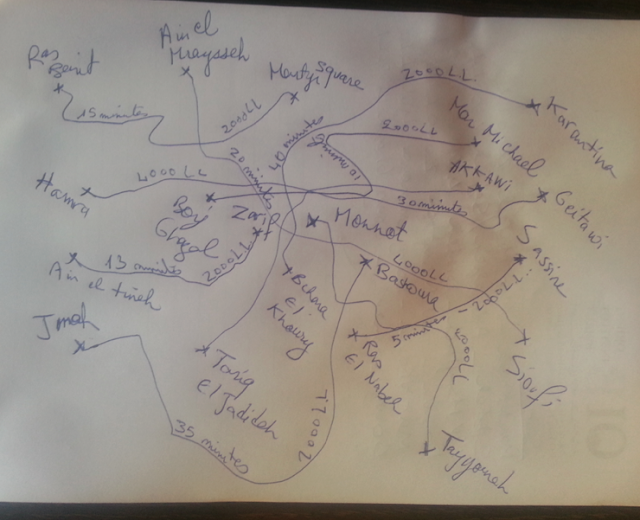 Ras
Beirut
Ain el
Mraysseh
Martyr Square
2000LL
Karantina
15 minutes
2000LL
40 minutes
2000LL
Mar Michael
20 minutes
4000LL
AKKAWI
Hamra
30 minutes
Geitawi
Borj
Ghazal
Zarif
Monnot
Sassine
Ain el tineh
13 minutes
2000LL
4000LL
Bastowa
2000LL
Bchara
El
Khoury
Jnah
5 minutes
Ras
El Nabeh
2000LL
Siofi
Tariq
El Jadideh
35 minutes
2000LL
Tayyouneh